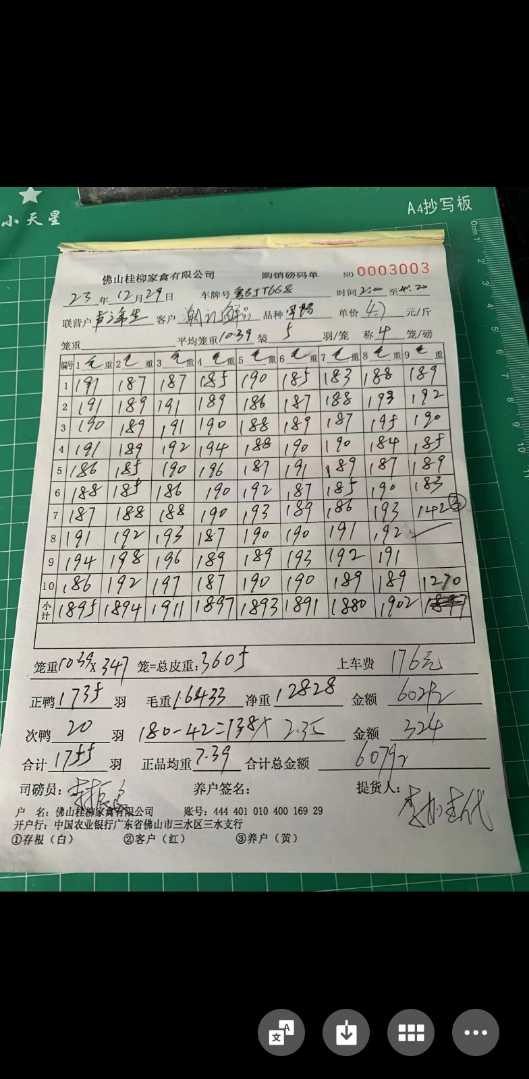 小天星
A4抄写板
佛山桂柳家禽有限公司 购销磅码单 NO 0003003
23年12月29日 车牌号 时间 至
联营户 客户 品种 单价 4.7 元/斤
笼重 平均笼重 10.39 装 5 羽/笼 称 4 笼/磅
编号 1 毛重 2 毛重 3 毛重 4 毛重 5 毛重 6 毛重 7 毛重 8 毛重 9 毛重
1 191 187 187 185 190 185 183 188 189
2 191 189 191 189 186 187 188 193 192
3 190 189 191 190 188 189 187 195 190
4 191 189 192 194 188 190 190 184 185
5 186 185 190 196 187 191 189 187 189
6 188 185 186 190 192 187 185 190 183
7 187 188 188 190 193 189 186 193 142 ③
8 191 192 193 187 190 190 191 192
9 194 198 196 189 189 193 192 191
10 186 192 197 187 190 190 189 189 1270
小计 1895 1894 1911 1897 1893 1891 1880 1902
笼重 10.39 x 347 笼=总皮重: 3605 上车费 176元
正鸭 1735 羽 毛重 16433 净重 12828 金额 60292
次鸭 20 羽 180-42=138x 2.35 金额 324
合计 1755 羽 正品均重 7.39 合计总金额 60792
司磅员: 养户签名: 提货人:
户 名: 佛山桂柳家禽有限公司 账号: 444 401 010 400 169 29
开户行: 中国农业银行广东省佛山市三水区三水支行
①存根（白） ②客户（红） ③养户（黄）